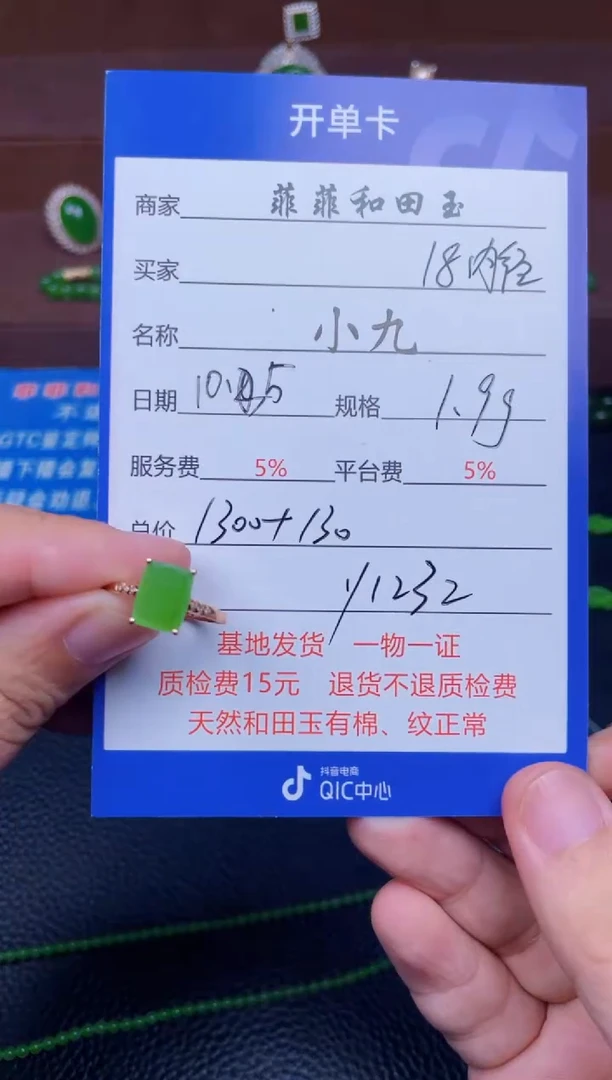 开单卡
商家 菲菲和田玉
买家 18内径
名称 小九
日期 10. 5 规格 1.9g
服务费 5% 平台费 5%
总价 1300+130
y1232
基地发货 一物一证
质检费15元 退货不退质检费
天然和田玉有棉、纹正常
抖音电商
QIC中心